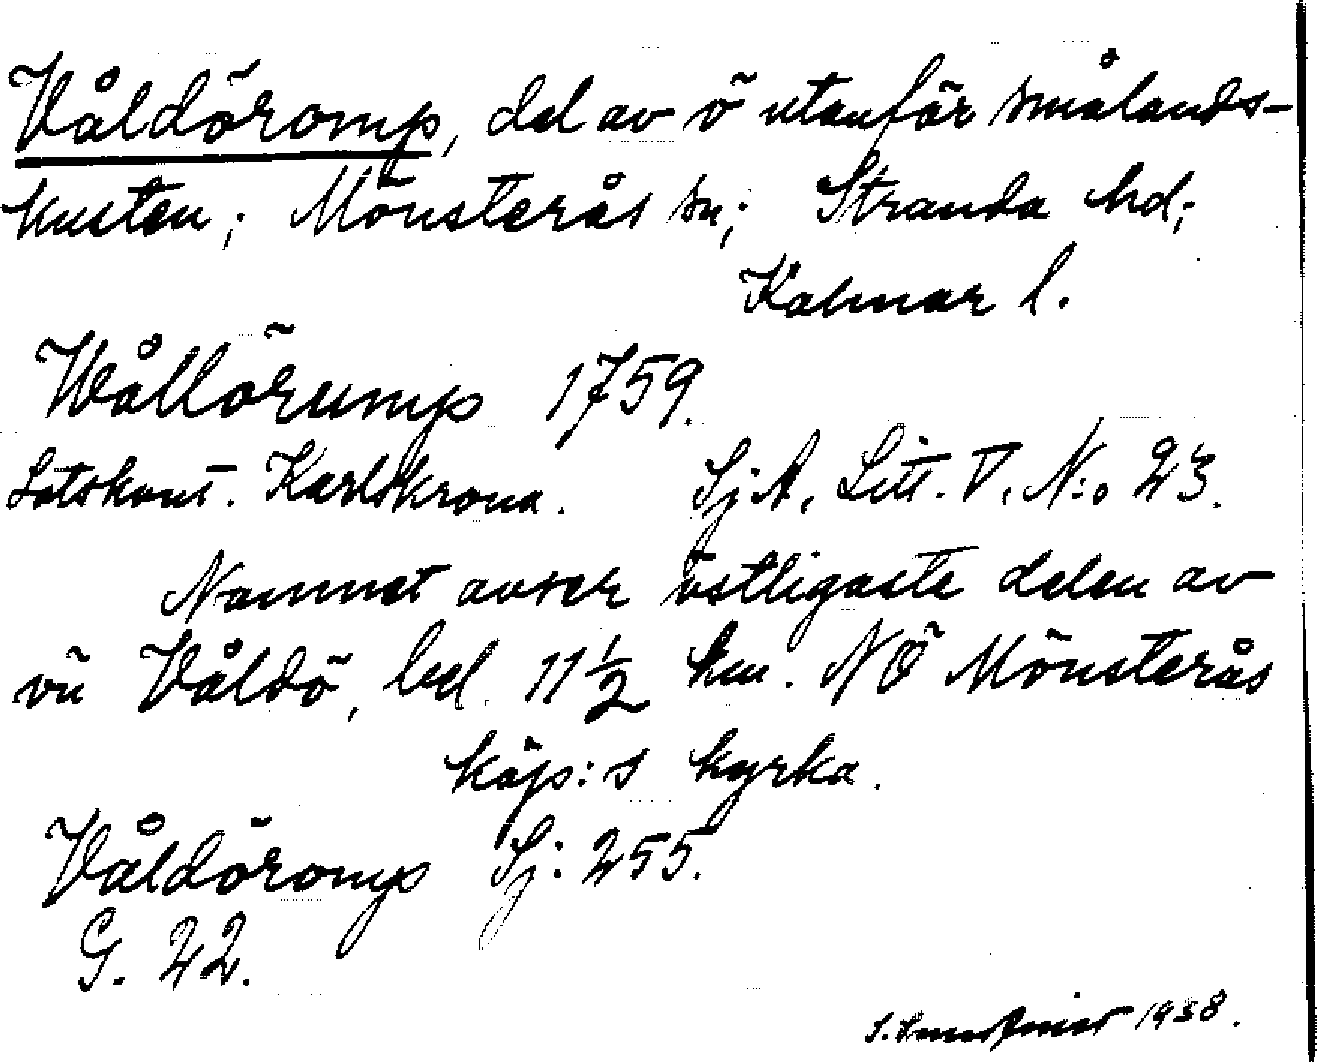 Våldöromp, del av ö utanför smålands-
kusten; Mönsterås sn; Stranda hd;
Kalmar l.
Wållörump 1759.
Lotskont. Karlskrona. SjA, Litt. V. N:o 23.
Namnet avser östligaste delen av
ön Våldö, bel. 11 1/2 km. NÖ Mönsterås
köp:s kyrka.
Våldöromp Sj: 255.
G. 22.
1938.